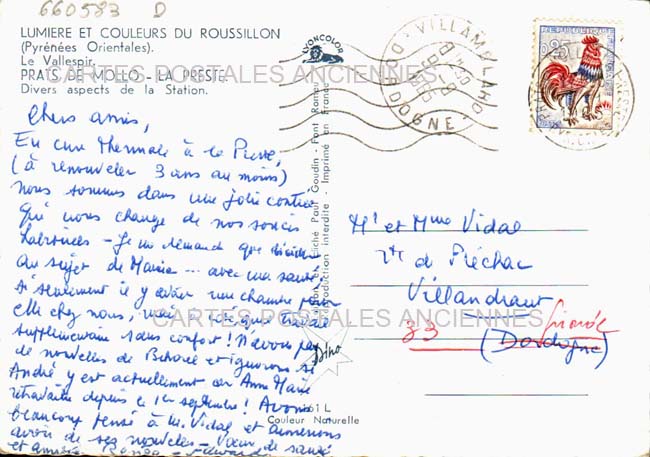 660583 D
LUMIERE ET COULEURS DU ROUSSILLON
(Pyrénées Orientales).
Le Vallespir.
PRATS DE MOLLO - LA PRESTE.
Divers aspects de la Station.
LYONCOLOR
VILLAMBLARD
DORDOGNE
0,25
CARTES POSTALES ANCIENNES
Chers amis,
En cure thermale à la Preste,
(à renouveler 3 ans au moins)
nous sommes dans une jolie contrée
qui nous change de nos soucis
habituels - Je me demande que décider
au sujet de Mamie ... avec ma santé
si seulement il y avait une chambre pour
elle chez nous, mais
supplémentaire sans confort ! N'avons pas
de nouvelles de et ignorons si
André y est actuellement car Anne Marie
retravaille depuis le 1er septembre ! Avons
beaucoup pensé à M. Vidal et aimerions
avoir de ses nouvelles - Vœux de santé
et amitiés
Cliché Paul Goudin - Font Romeu
reproduction interdite - Imprimé en France
Mr et Mme Vidal
rte de Préchac
Villandraut
33 Gironde
(Dordogne)
CARTES POSTALES ANCIENNES
61 L
Couleur Naturelle